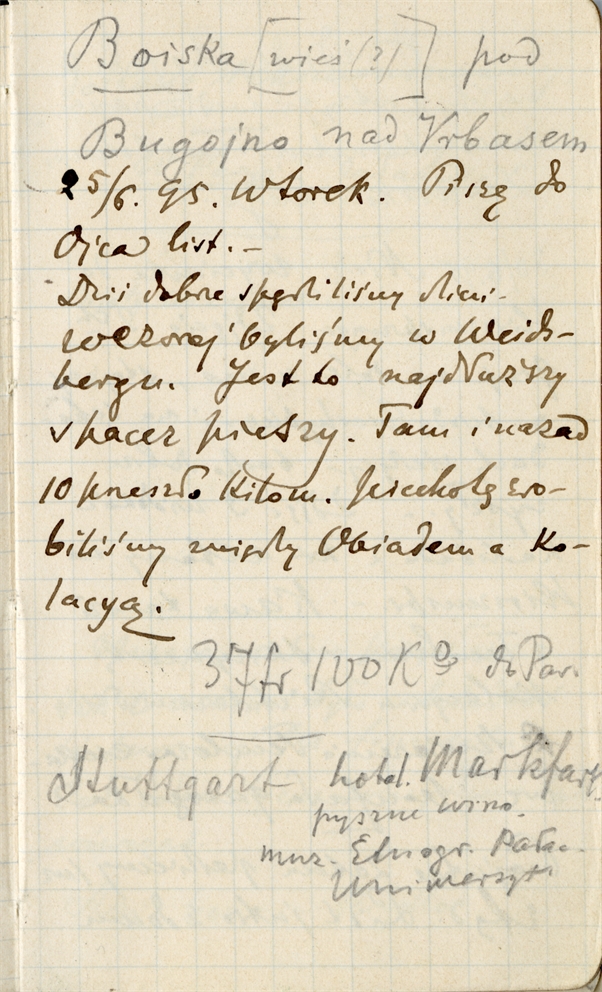 Boiska [wieś (?)] pod
Bugojno nad Vrbasem
25/6. 95. Wtorek. Piszę do
Ojca list.-
Dziś dobrze spędziliśmy dzień-
wczoraj byliśmy w Weids-
bergu. Jest to najdłuższy
spacer pieszy. Tam i nazad
10 przeszło kilom. piechotą zro-
biliśmy między Obiadem a Ko-
lacyą.
37fr 100K do Par.
Stuttgart hotel. Markfart
pyszne wino.
muz. Etnogr. Pała.
Uniwersyt.